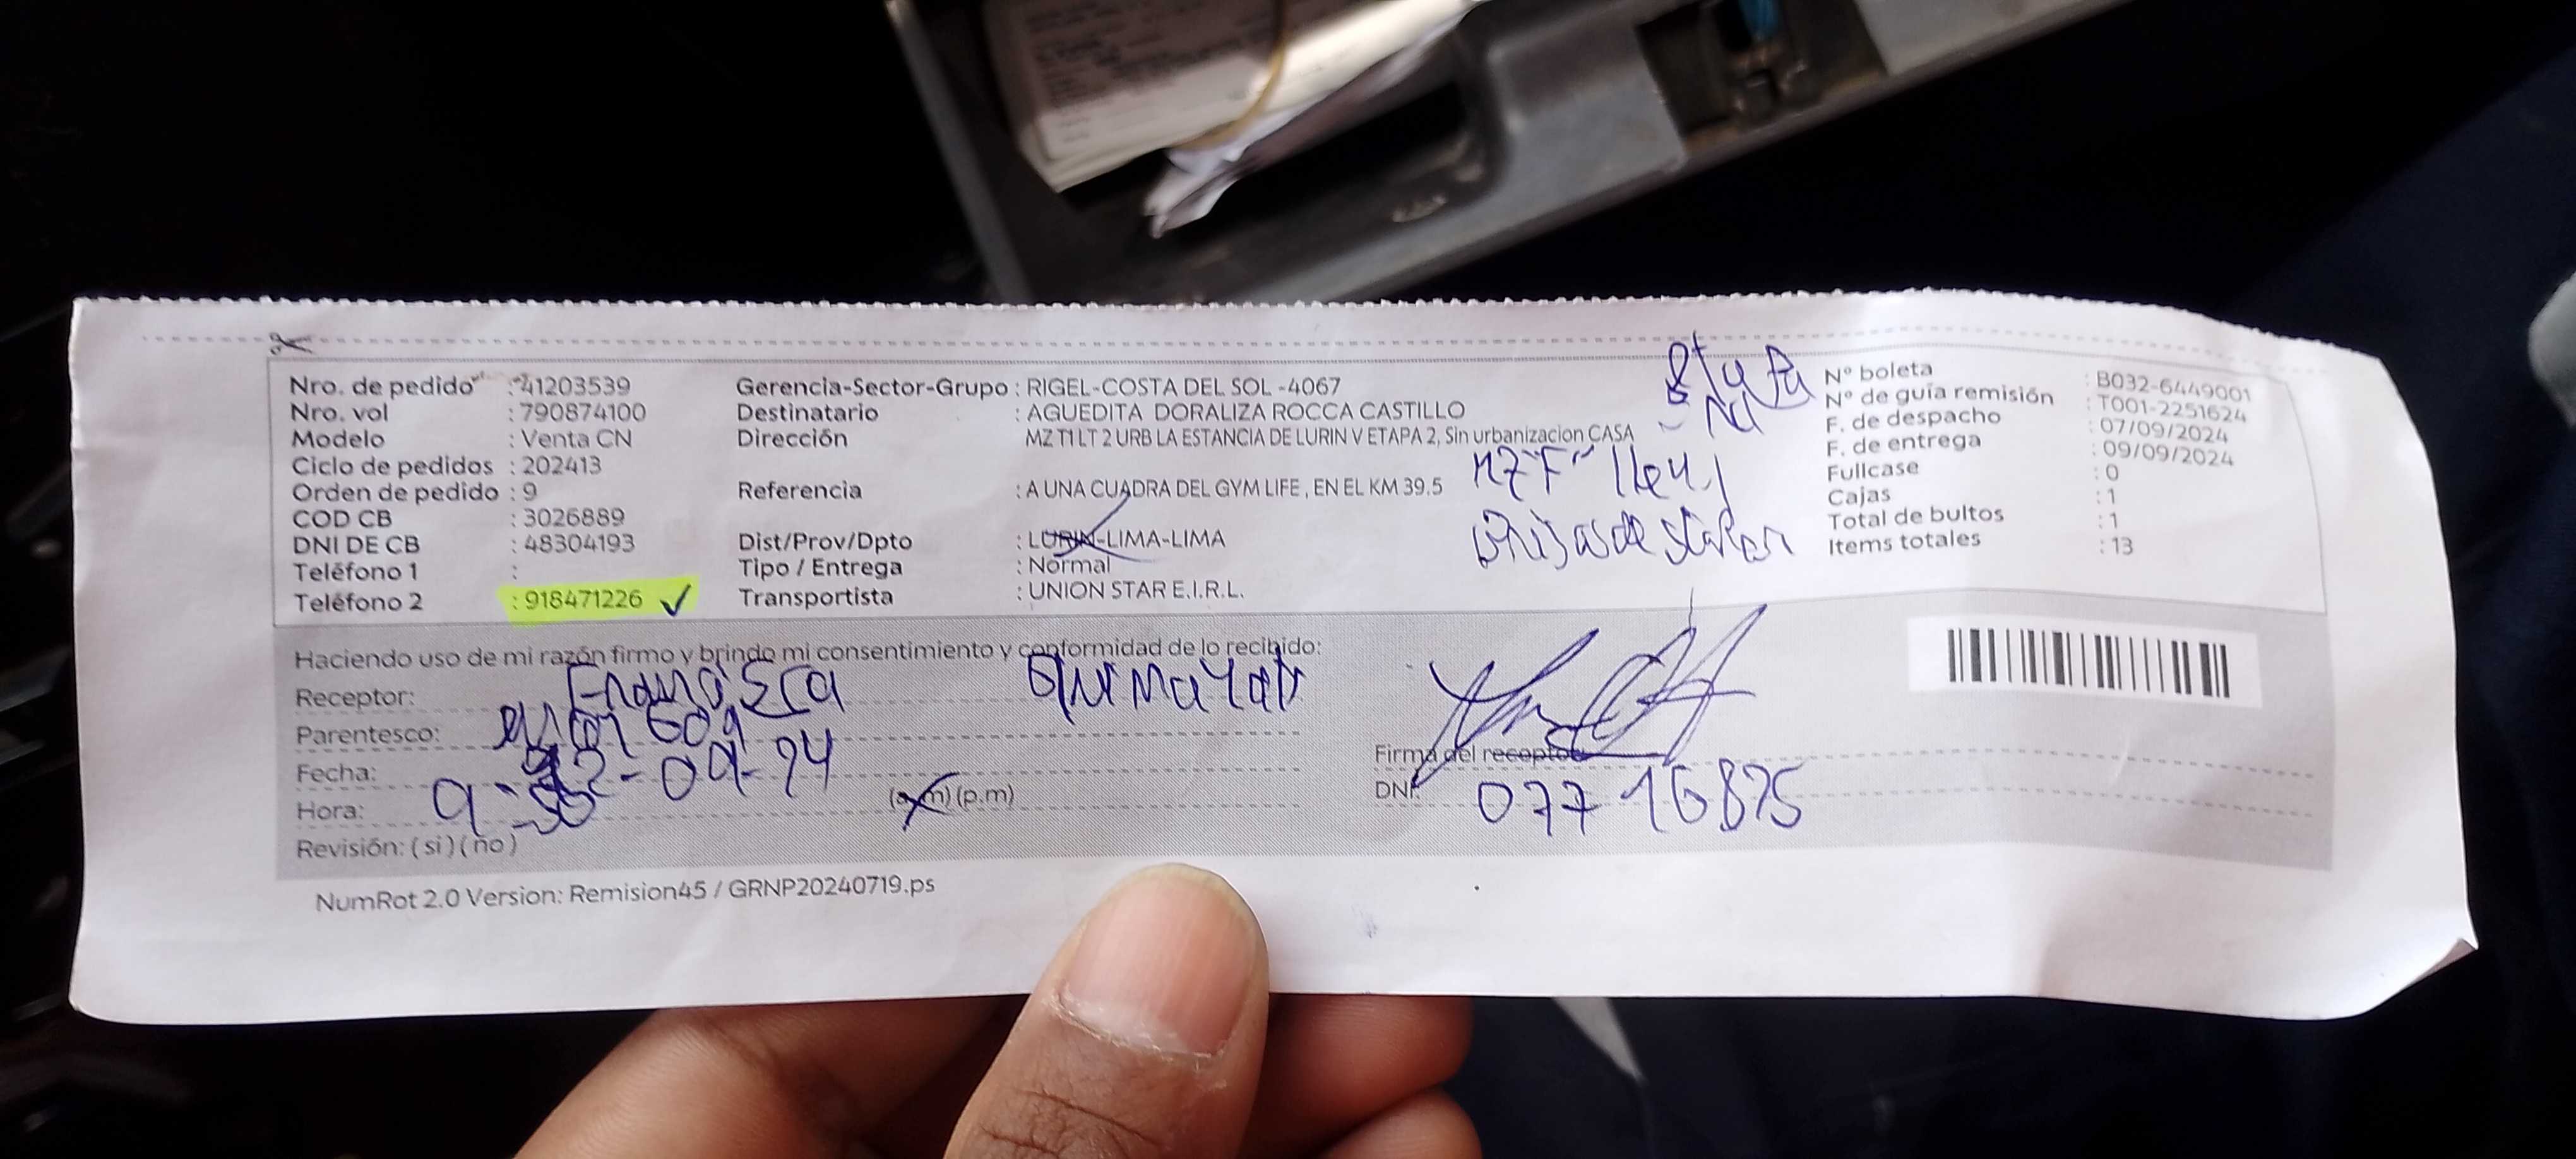 Nro. de pedido : 41203539
Nro. vol : 790874100
Modelo : Venta CN
Ciclo de pedidos : 202413
Orden de pedido : 9
COD CB : 3026889
DNI DE CB : 48304193
Teléfono 1 :
Teléfono 2 : 918471226 ✓
Gerencia-Sector-Grupo : RIGEL-COSTA DEL SOL -4067
Destinatario : AGUEDITA DORALIZA ROCCA CASTILLO
Dirección MZ T1 LT 2 URB LA ESTANCIA DE LURIN V ETAPA 2, Sin urbanizacion CASA
Referencia : A UNA CUADRA DEL GYM LIFE , EN EL KM 39.5
Dist/Prov/Dpto : LURIN-LIMA-LIMA
Tipo / Entrega : Normal
Transportista : UNION STAR E.I.R.L.
Nº boleta : B032-6449001
Nº de guía remisión : T001-2251624
F. de despacho : 07/09/2024
F. de entrega : 09/09/2024
Fullcase : 0
Cajas : 1
Total de bultos : 1
Items totales : 13
Haciendo uso de mi razón firmo y brindo mi consentimiento y conformidad de lo recibido:
Receptor:
Parentesco:
Fecha: -09-24
Hora: (a.m) (p.m)
Revisión: ( si ) ( no )
Firma del receptor
DNI: 07716875
NumRot 2.0 Version: Remision45 / GRNP20240719.ps